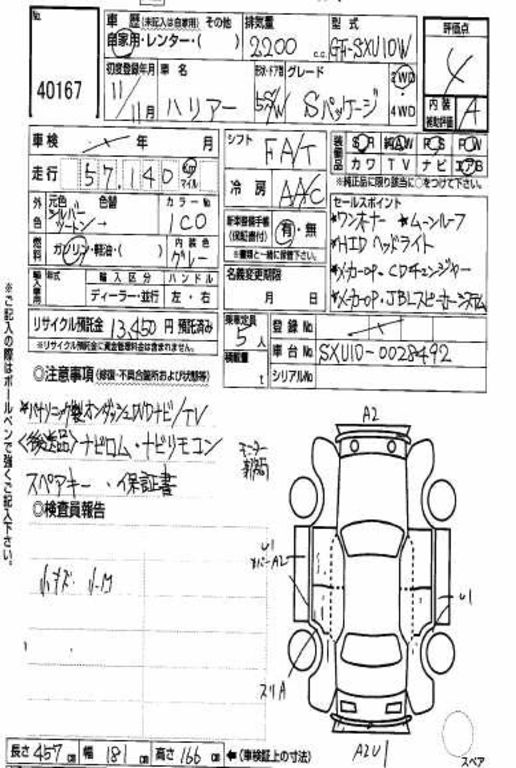 No.
40167
車 歴 (未記入は自家用) その他
自家用・レンター・( )
排気量
2200 c.c.
型式
GF-SXU10W
評価点
4
内装
補助評価
A
初度登録年月
11/11月
車 名
ハリアー
形状・ドア数
5 S/W
グレード
Sパッケージ
2WD
4WD
車検 年 月
走行 57,140 km マイル
シフト
FA/T
冷房
AAC
装備品
S R 純AW P S P W
カワ TV ナビ エアB
※純正品に限り該当に○をつけて下さい。
外色
元色 色替
シルバー
ツートン→
カラーNo
1C0
燃料
ガソリン・軽油・( )
内装色
グレー
新車整備手帳
(保証書付)
有・無
※書類と一緒に保管下さい。
セールスポイント
*ワンオーナー *ムーンルーフ
*HID ヘッドライト
*メーカーOP・CDチェンジャー
*メーカーOP・JBLスピーカーシステム
輸入車用
年式
輸入区分
ハンドル
ディーラー・並行
左・右
名義変更期限
月 日
リサイクル預託金 13,450 円 預託済み
※リサイクル預託金に資金管理料金は含まれません。
乗車定員
5人
積載量
t
登録No
車台No SXU10-0028492
シリアルNo
◎注意事項 (修復・不具合箇所および状態等)
*パナソニック製オンダッシュDVDナビ/TV
〈後送品〉ナビロム・ナビリモコン
スペアキー・保証書
◎検査員報告
小キズ 小凹
モニター
A2
U1
A2
U1
スリA
A2U1
スペア
長さ 457 cm 幅 181 cm 高さ 166 cm ←(車検証上の寸法)
※ご記入の際はボールペンで強くご記入下さい。